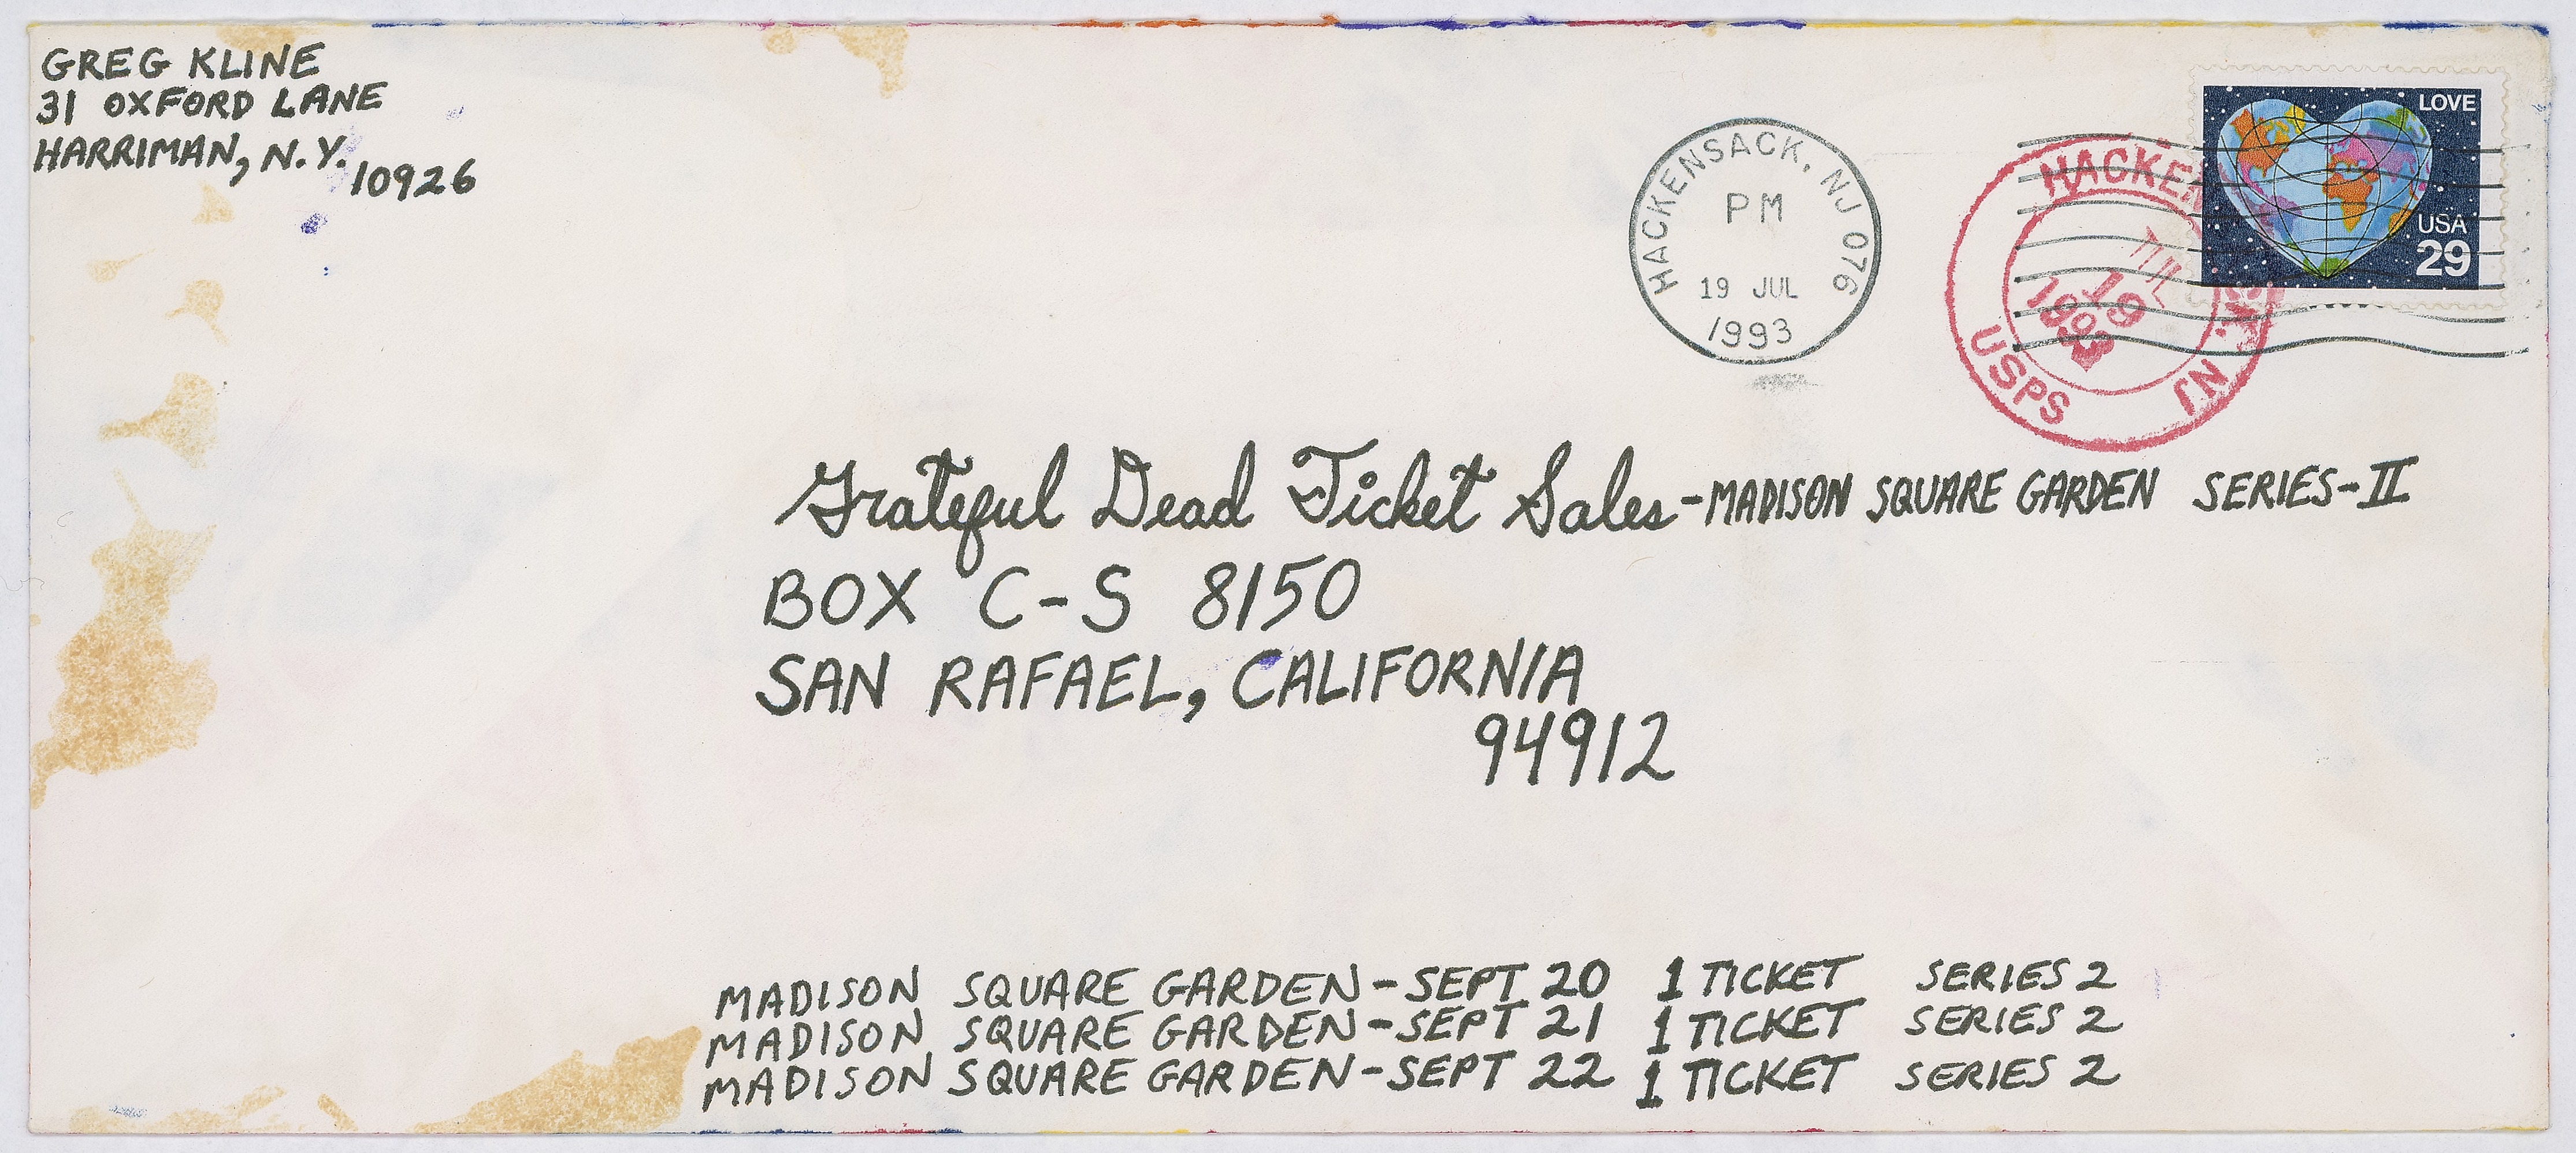 GREG KLINE
31 OXFORD LANE
HARRIMAN, N.Y.
10926
HACKENSACK, NJ 076
PM
19 JUL
1993
HACKENSACK, NJ
JUL
19
1993
USPS
LOVE
USA
29
Grateful Dead Ticket Sales-MADISON SQUARE GARDEN SERIES-II
BOX C-S 8150
SAN RAFAEL, CALIFORNIA
94912
MADISON SQUARE GARDEN-SEPT 20 1 TICKET SERIES 2
MADISON SQUARE GARDEN-SEPT 21 1 TICKET SERIES 2
MADISON SQUARE GARDEN-SEPT 22 1 TICKET SERIES 2